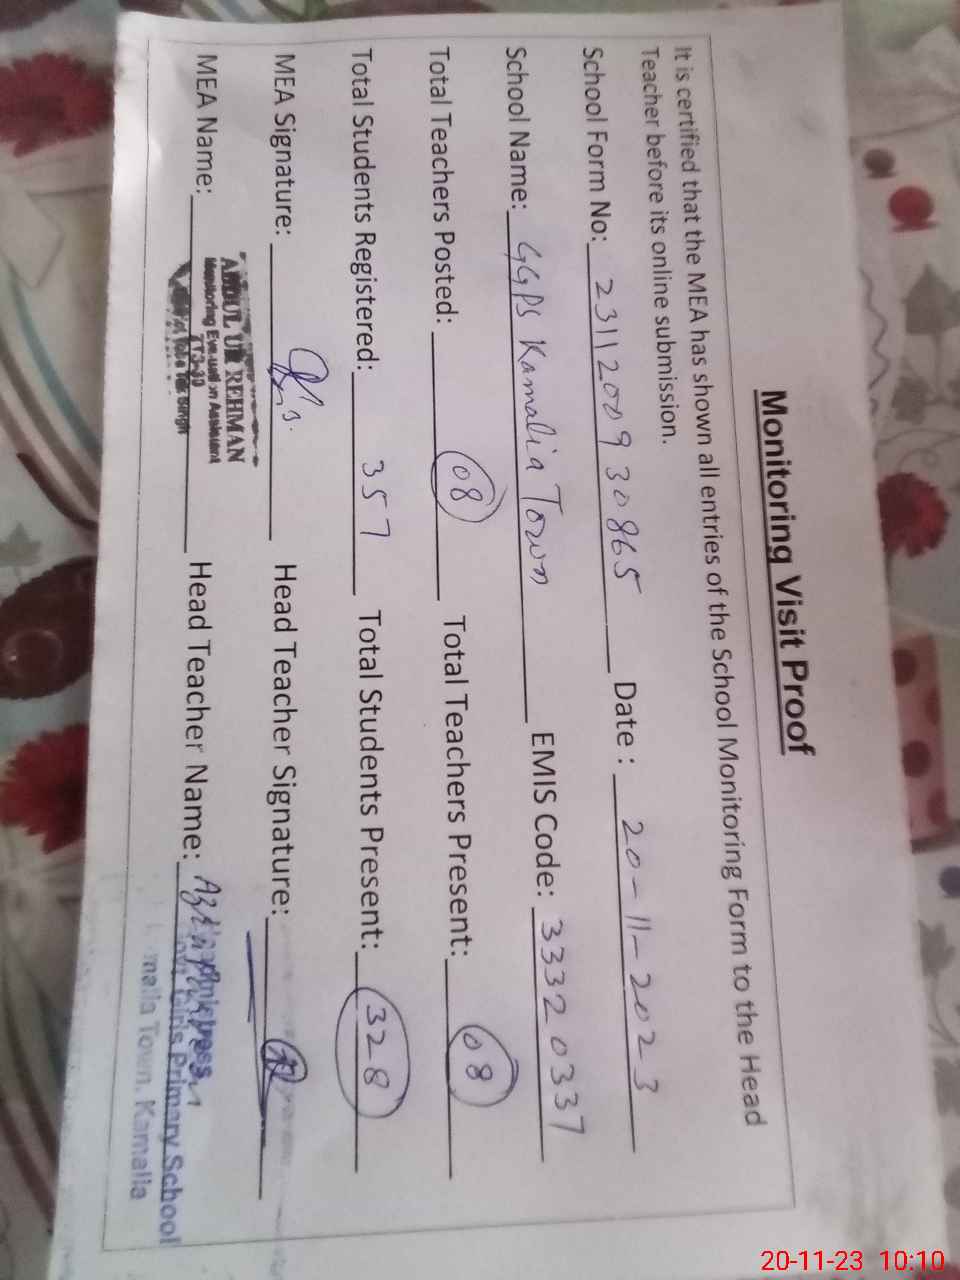 Monitoring Visit Proof
It is certified that the MEA has shown all entries of the School Monitoring Form to the Head
Teacher before its online submission.
School Form No: 231120093 0865 Date : 20-11-2023
School Name: GGPS Kamalia Town EMIS Code: 33320337
Total Teachers Posted: 08 Total Teachers Present: 08
Total Students Registered: 357 Total Students Present: 328
MEA Signature: Head Teacher Signature:
ABDUL UR REHMAN
Monitoring Evaluation Assistant
MEA Name: Head Teacher Name:
Girls Primary School
Town. Kamalia
20-11-23 10:10